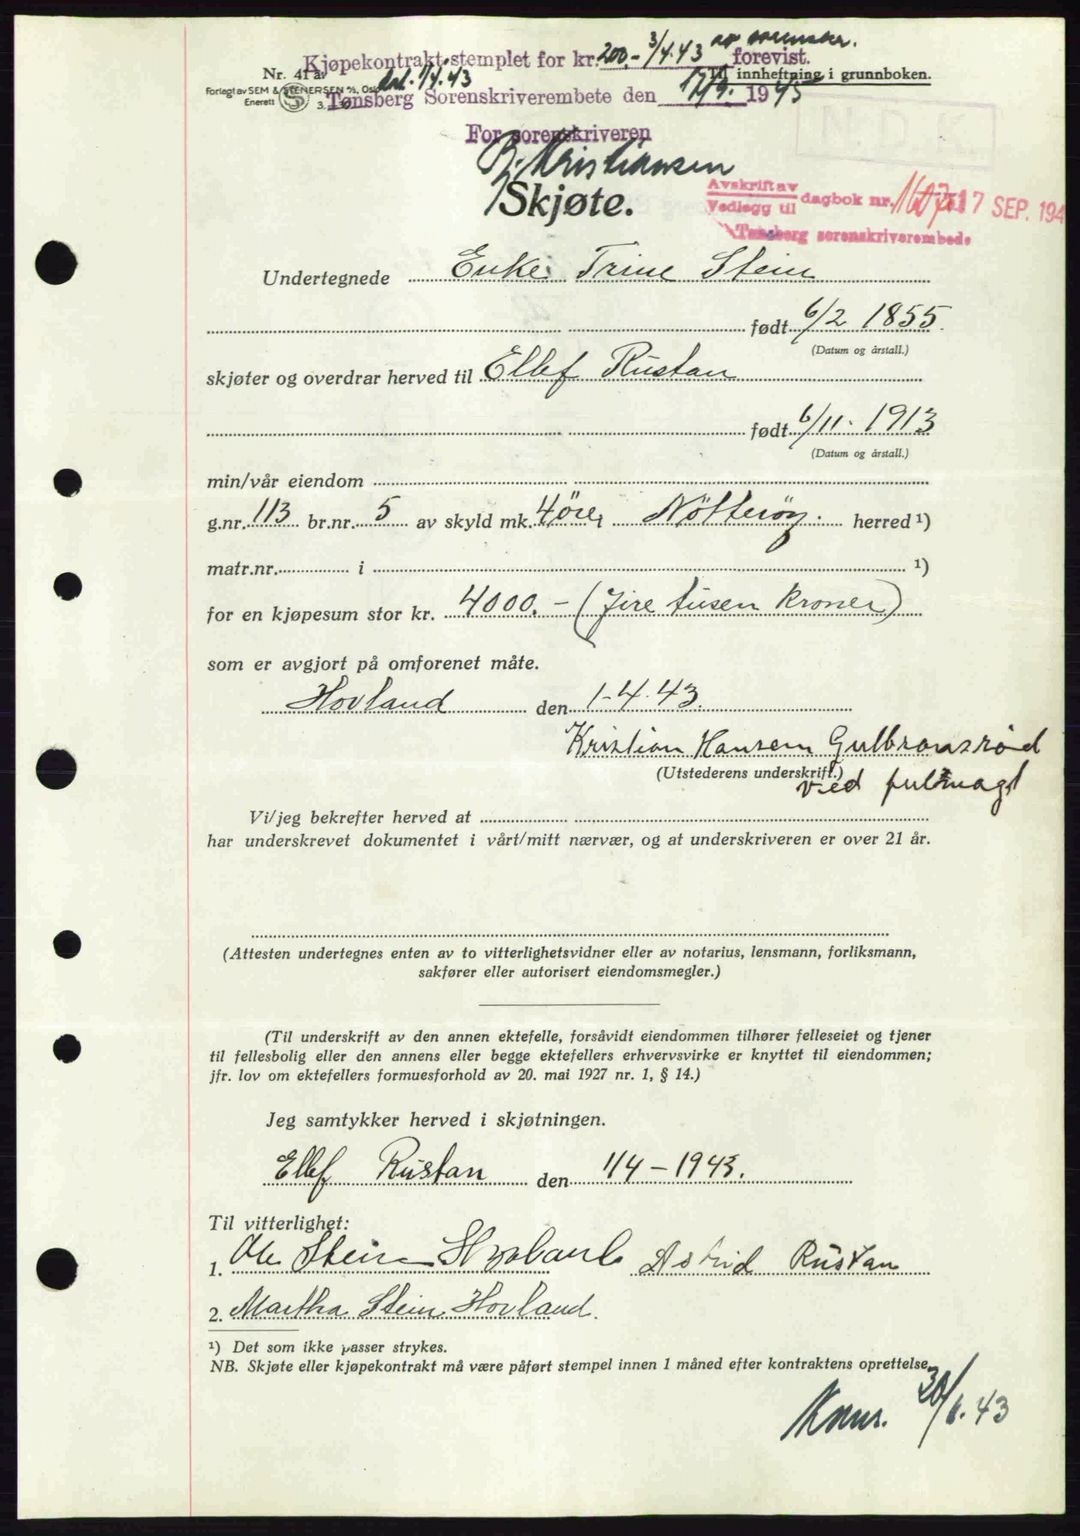 Kjøpekontrakt stemplet for kr. 200.- 3/4.43 forevist.
Nr. 41 a dat. 1/4.43 Til innheftning i grunnboken.
Forlagt av SEM & STENERSEN A/S, Oslo
Enerett S 3.
Tønsberg Sorenskriverembete den 17/9. 1945
For sorenskriveren
B. Kristiansen
N.D.K.
Skjøte.
Avskrift av
Vedlegg til dagbok nr. 17 SEP. 194
Tønsberg sorenskriverembede
Undertegnede Enke Trine Stein
født 6/2 1855.
(Datum og årstall.)
skjøter og overdrar herved til Ellef Rustan
født 6/11. 1913
(Datum og årstall.)
min/vår eiendom
g.nr. 113 br.nr. 5 av skyld mk. 4 øre, Nötteröy. herred ¹)
matr.nr. i ¹)
for en kjøpesum stor kr. 4000.- (Fire tusen kroner)
som er avgjort på omforenet måte.
Hovland den 1-4.43.
Kristian Hansen Gulbransrød
(Utstederens underskrift.)
ved fulmagt
Vi/jeg bekrefter herved at
har underskrevet dokumentet i vårt/mitt nærvær, og at underskriveren er over 21 år.
(Attesten undertegnes enten av to vitterlighetsvidner eller av notarius, lensmann, forliksmann,
sakfører eller autorisert eiendomsmegler.)
(Til underskrift av den annen ektefelle, forsåvidt eiendommen tilhører felleseiet og tjener
til fellesbolig eller den annens eller begge ektefellers erhvervsvirke er knyttet til eiendommen;
jfr. lov om ektefellers formuesforhold av 20. mai 1927 nr. 1, § 14.)
Jeg samtykker herved i skjøtningen.
Ellef Rustan den 1/4 - 1943.
Til vitterlighet:
1. Ole Stein Hovland Astrid Rustan
2. Martha Stein Hovland.
¹) Det som ikke passer strykes.
NB. Skjøte eller kjøpekontrakt må være påført stempel innen 1 måned efter kontraktens oprettelse.
30/6.43